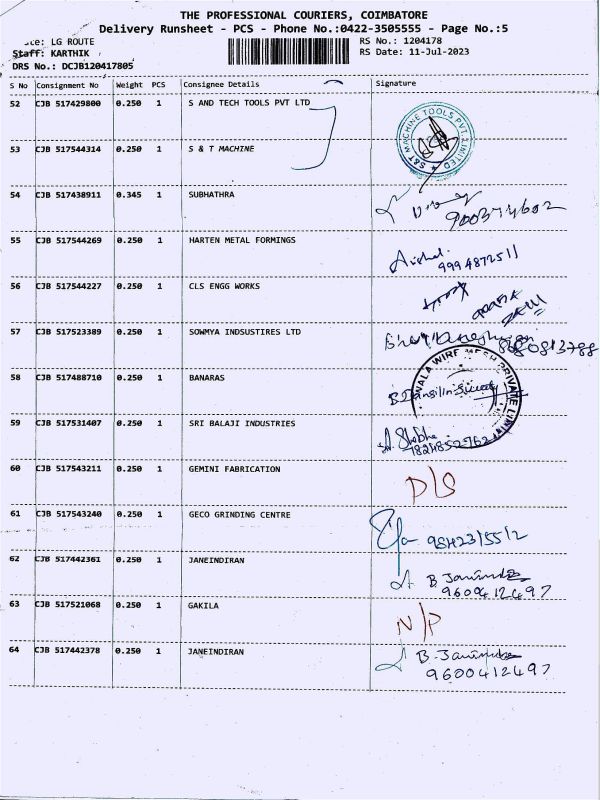 THE PROFESSIONAL COURIERS, COIMBATORE
Delivery Runsheet - PCS - Phone No.:0422-3505555 - Page No.:5
LG ROUTE
RS No.: 1204178
Staff: KARTHIK
RS Date: 11-Jul-2023
DRS No.: DCJB120417805
S No Consignment No Weight PCS Consignee Details Signature
52 CJB 517429800 0.250 1 S AND TECH TOOLS PVT LTD
S&T MACHINE TOOLS PVT. LIMITED
53 CJB 517544314 0.250 1 S & T MACHINE
54 CJB 517438911 0.345 1 SUBHATHRA
55 CJB 517544269 0.250 1 HARTEN METAL FORMINGS
9994872511
56 CJB 517544227 0.250 1 CLS ENGG WORKS
57 CJB 517523389 0.250 1 SOWMYA INDSUSTIRES LTD
WALA WIRE MESH PRIVATE LIMITED
58 CJB 517488710 0.250 1 BANARAS
59 CJB 517531407 0.250 1 SRI BALAJI INDUSTRIES
60 CJB 517543211 0.250 1 GEMINI FABRICATION D/S
61 CJB 517543240 0.250 1 GECO GRINDING CENTRE
62 CJB 517442361 0.250 1 JANEINDIRAN
9600412497
63 CJB 517521068 0.250 1 GAKILA N/P
64 CJB 517442378 0.250 1 JANEINDIRAN
9600412497